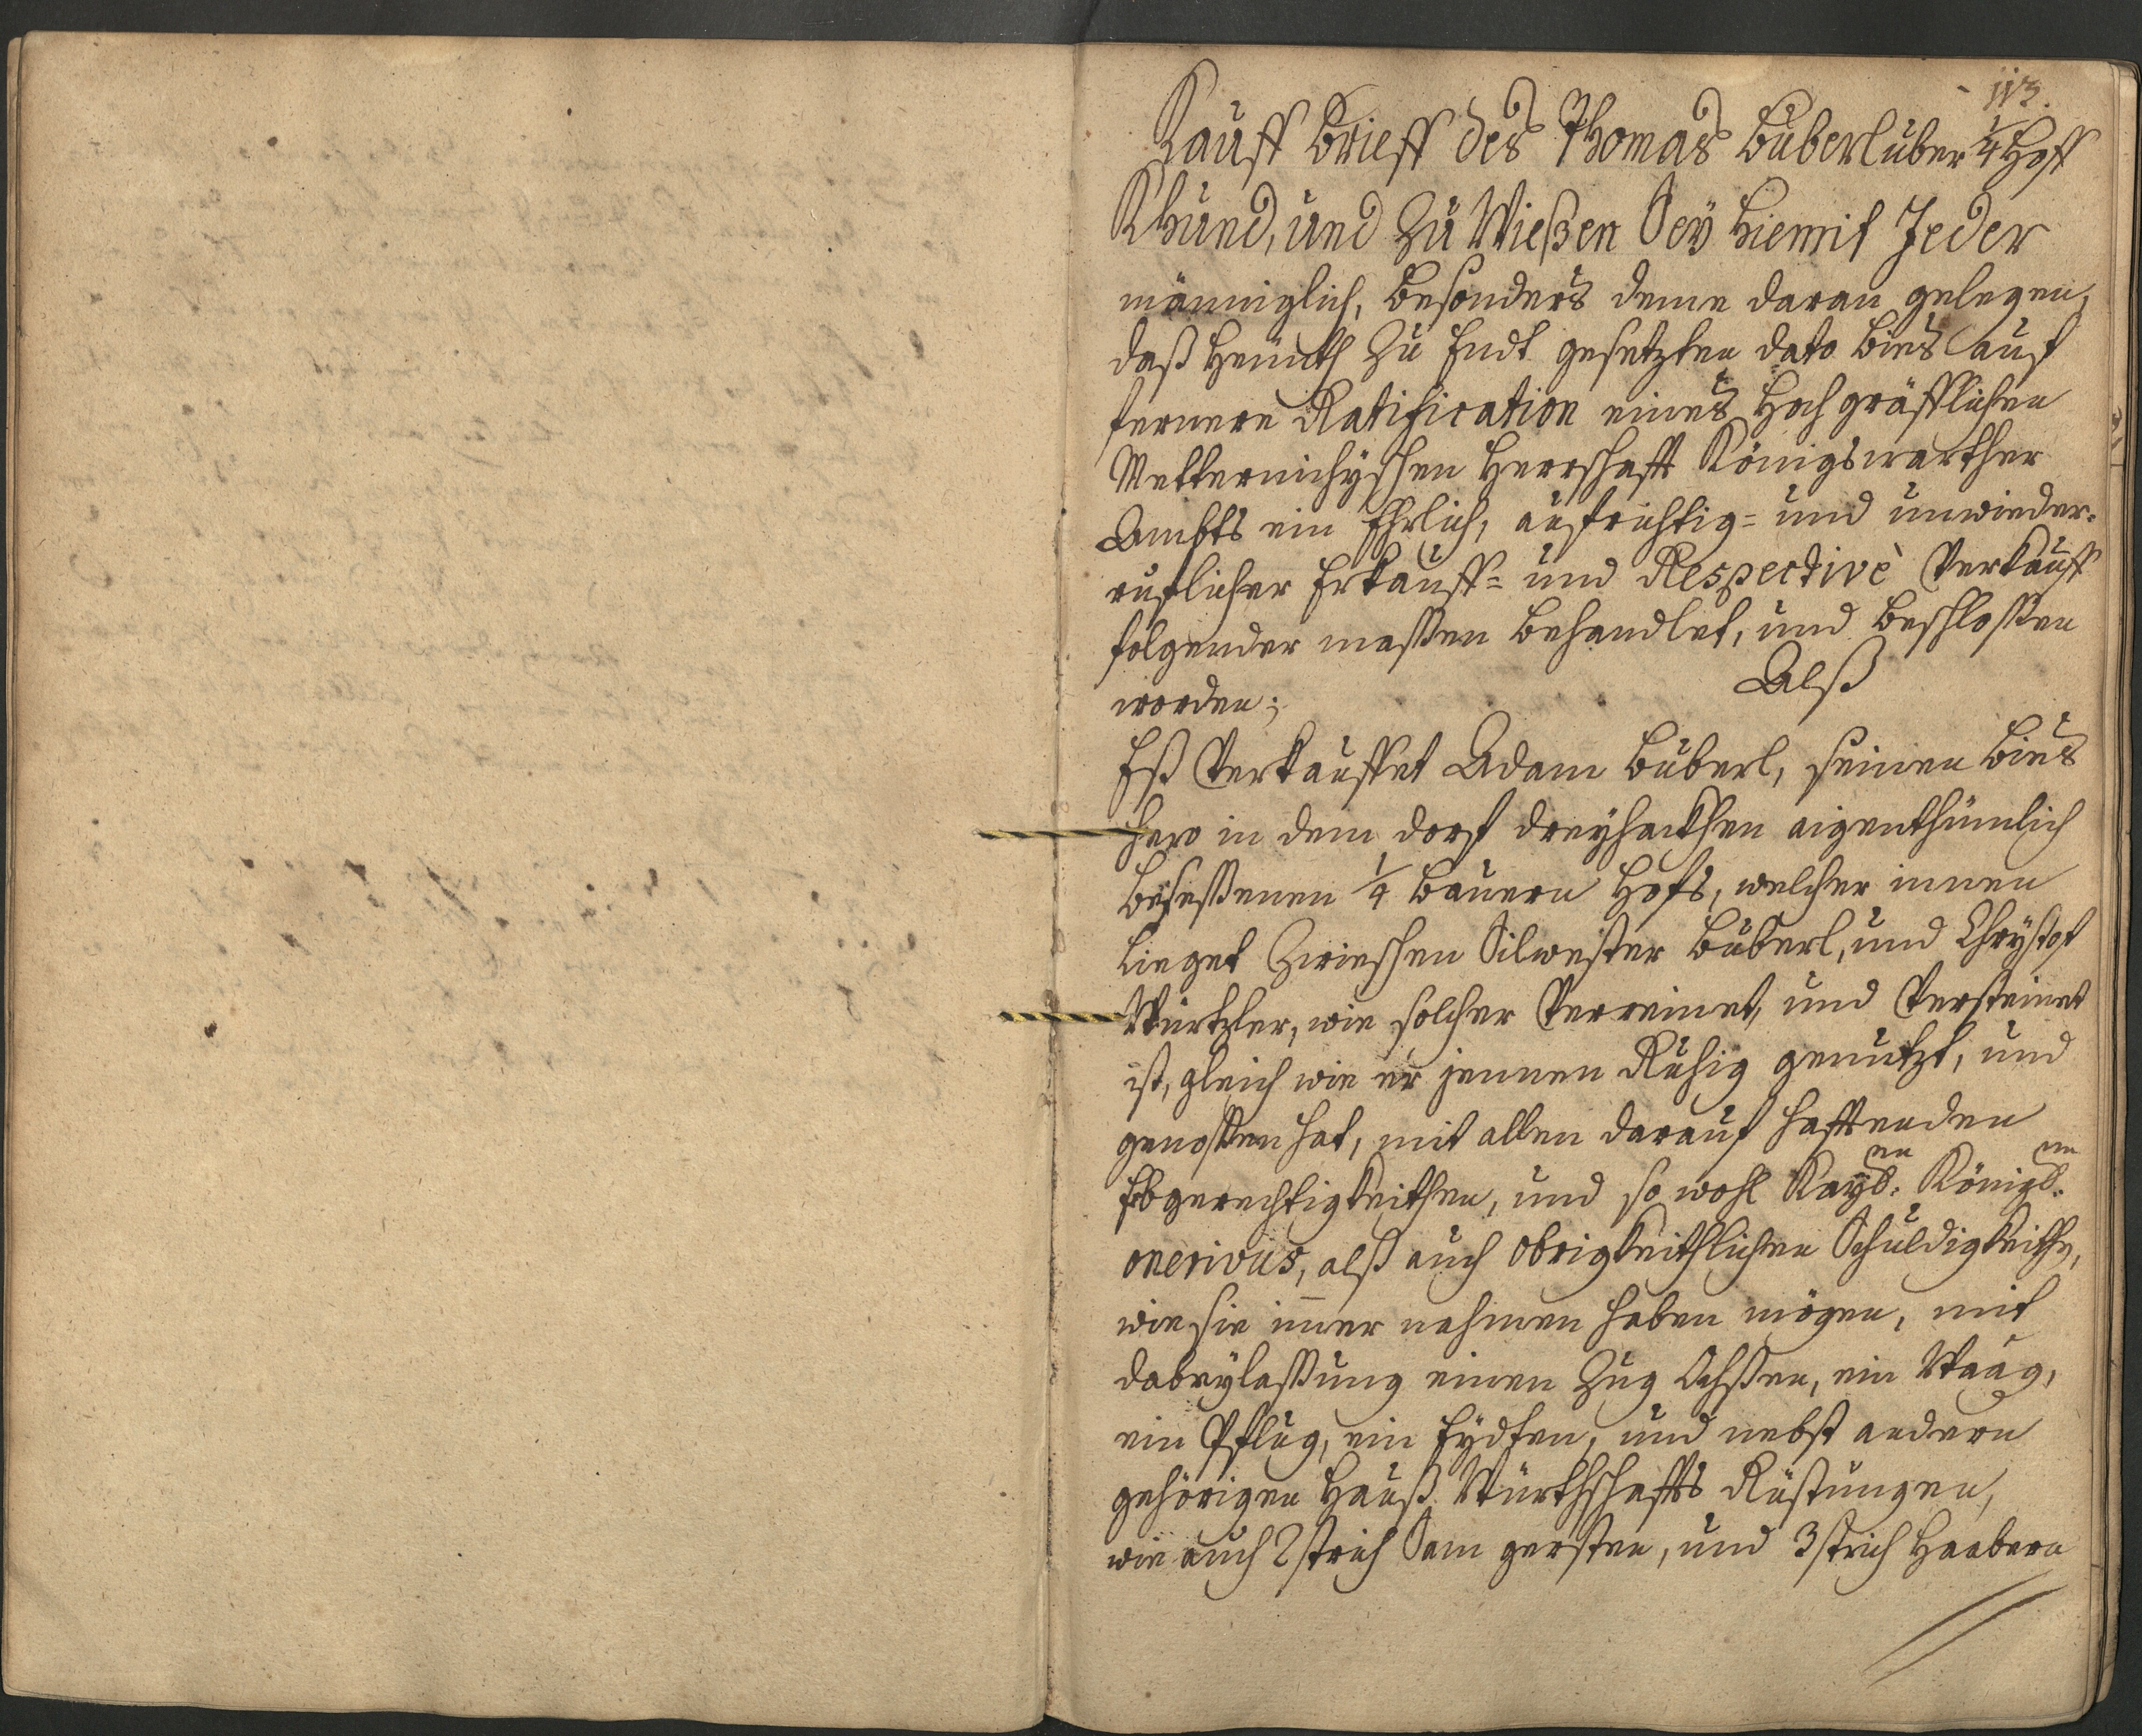 113.
Kauff Brieff des Thomas Büberl über 1/4 Hoff
Khund, und Zu Wießen Seÿ hiemit Jeder
männiglich, besonders deme daran gelegen,
daß heünth Zu Endt gesetzten dato bies auf
fernere Ratification eines Hochgräfflichen
Metternichyschen Herrschafft Königswarther
Ambts ein Ehrlich, aufrichtig- und unwieder-
ruflicher Erkauff- und Respectivè Verkauff
folgender massen behandlet, und beschlossen
worden; Alß
Eß Verkauffet Adam Büberl, seinen bies
hero in dem dorf dreyhackhen aigenthümlich
besessenen 1/4 Bauern Hofs, welcher innen
Lieget Zwieschen Silwester Büberl, und Chrÿstof
Würtzler, wie solcher Verreinet, und Versteinet
ist, gleich wie er jennen Ruhig genutzt, und
genossen hat, mit allen darauf hafftenden
Ebgerechtigkeithen, und so wohl Kayßl:en Königl:en
oneribus, alß auch obrigkeithlichen Schuldigkeithen,
wie sie im̄er nahmen haben mögen, mit
dabeylassung einen Zug Ochssen, ein Waag,
ein Pflug, ein Eydten, und nebst andern
gehörigen Hauß Würthschaffts Rüstungen,
wie auch 2 strich Sam gersten, und 3 strich Haabern